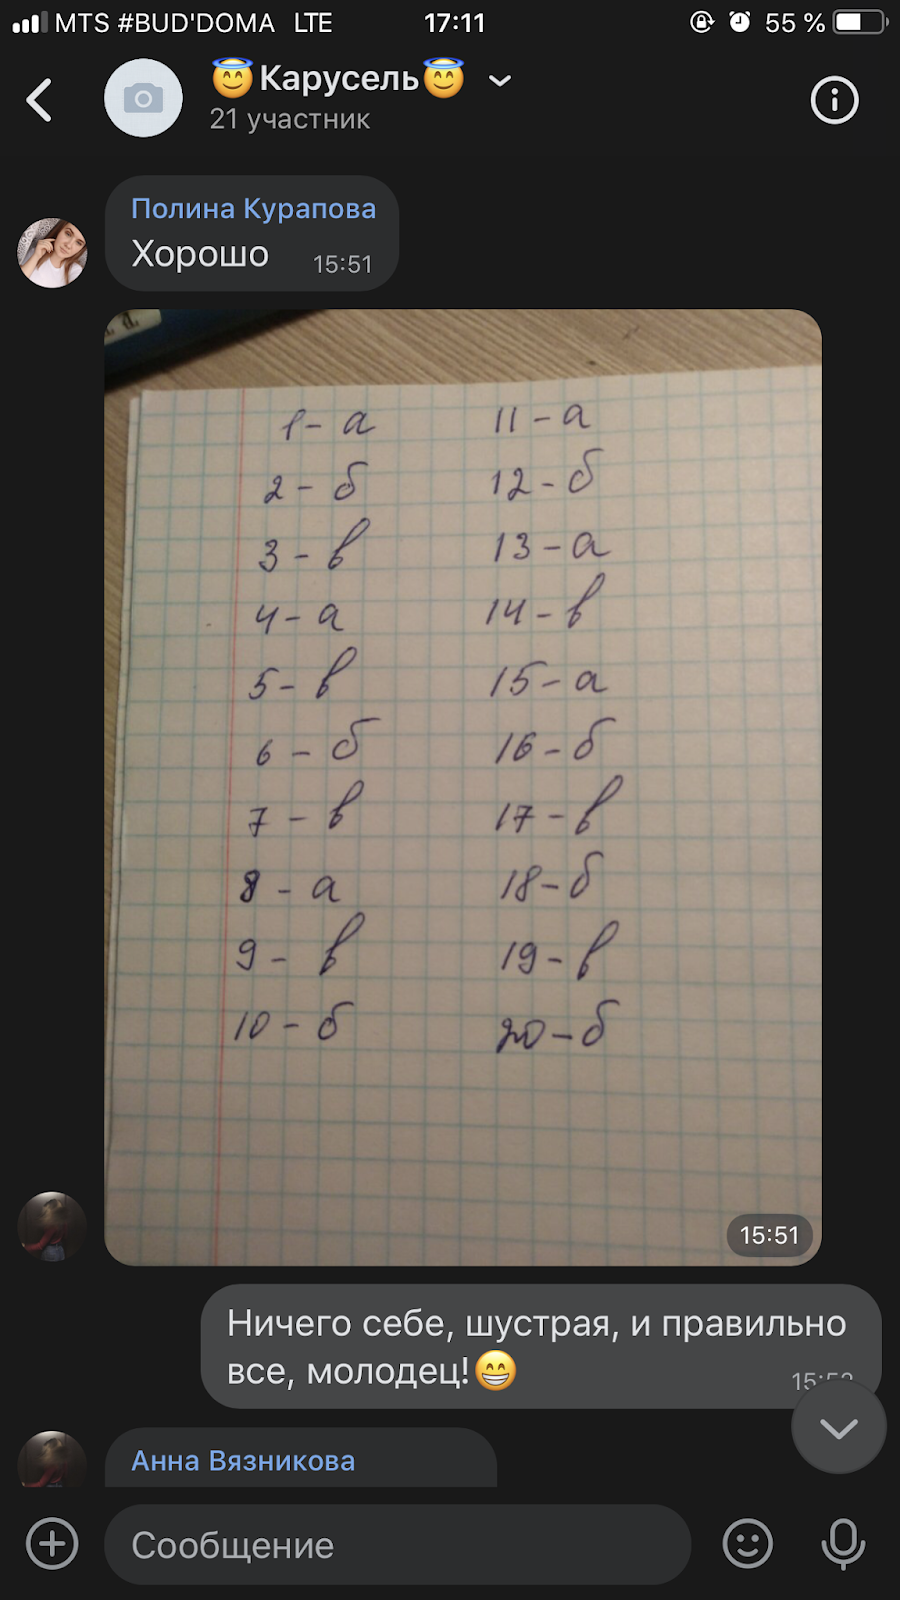 MTS #BUD'DOMA LTE 17:11 55 %
😇Карусель😇
21 участник
Полина Курапова
Хорошо 15:51
1 - а
2 - б
3 - в
4 - а
5 - в
6 - б
7 - в
8 - а
9 - в
10 - б
11 - а
12 - б
13 - а
14 - в
15 - а
16 - б
17 - в
18 - б
19 - в
20 - б
15:51
Ничего себе, шустрая, и правильно
все, молодец!😁
Анна Вязникова
Сообщение